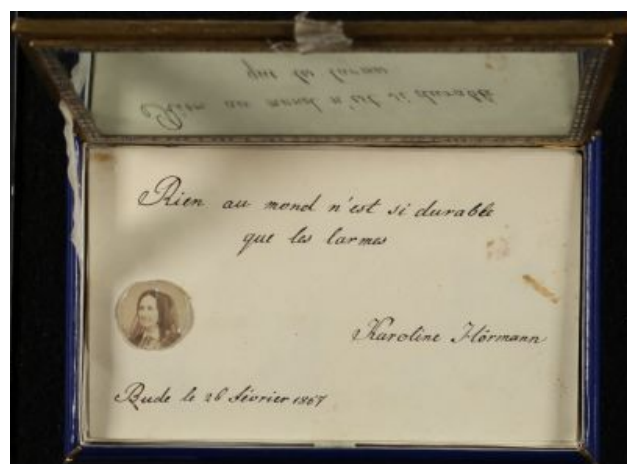 Rien au mond n'est si durable
que les larmes
Karoline Hörmann
Bude le 26 février 1867